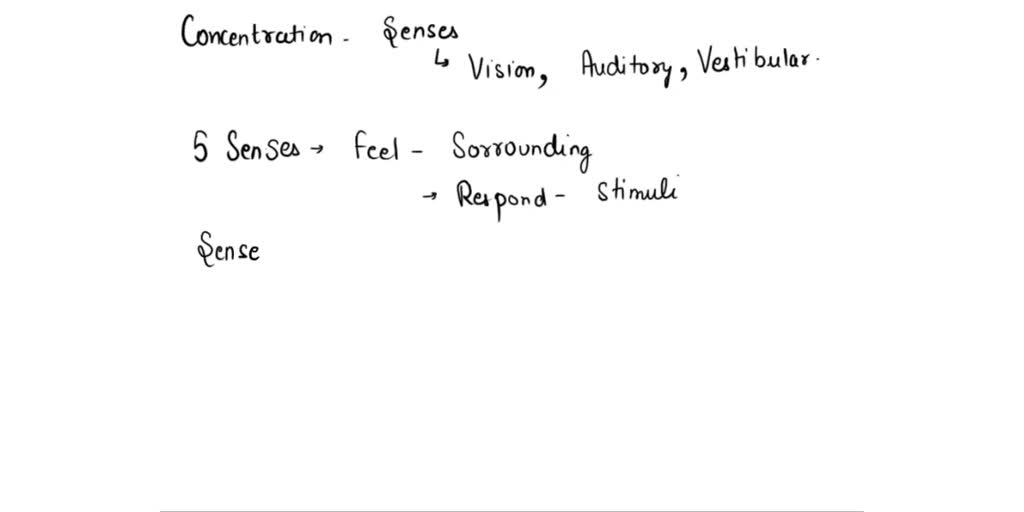 Concentration - Senses
↳ Vision, Auditory, Vestibular.
5 Senses → Feel - Sorrounding
→ Respond - Stimuli
Sense